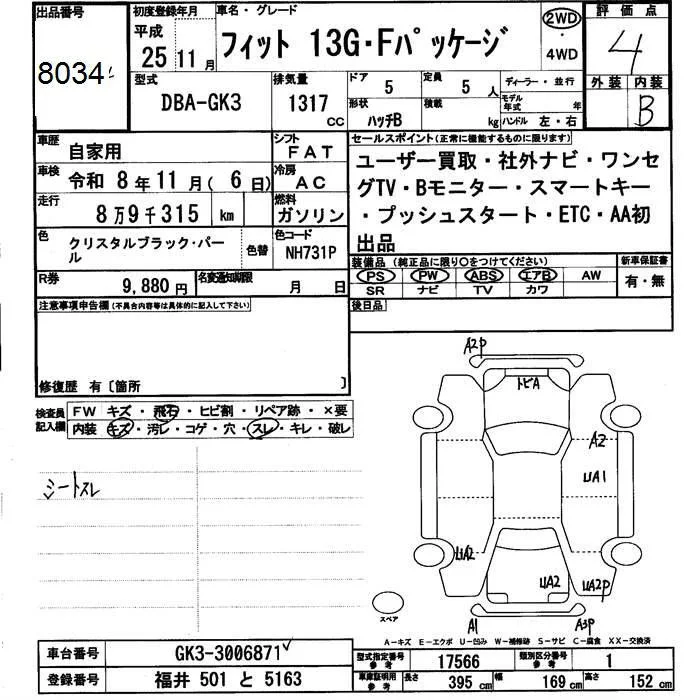 出品番号
8034
初度登録年月
平成
25 11月
車名・グレード
フィット 13G・Fパッケージ
2WD
4WD
評価点
4
型式
DBA-GK3
排気量
1317 CC
ドア
5
定員
5 人
形状
ハッチB
積載
kg
ディーラー・並行
モデル年式 年
ハンドル 左・右
外装 内装
B
車歴
自家用
シフト
FAT
車検
令和 8年11月( 6日)
冷房
AC
走行
8万9千315 km
燃料
ガソリン
色
クリスタルブラック・パール
色替
色コード
NH731P
R券
9,880円
名変通知期限
月 日
セールスポイント(正常に機能するものに限ります)
ユーザー買取・社外ナビ・ワンセ
グTV・Bモニター・スマートキー
・プッシュスタート・ETC・AA初
出品
装備品 (純正品に限り○をつけてください)
新車保証書
PS PW ABS エアB AW
SR ナビ TV カワ
有・無
後日品
注意事項申告欄(不具合内容等は具体的に記入して下さい)
修復歴 有〔箇所 〕
検査員
記入欄
FW キズ・飛石・ヒビ割・リペア跡・×要
内装 キズ・汚レ・コゲ・穴・スレ・キレ・破レ
シートスレ
A2P
トビA
A2
UA1
UA2
UA2
UA2P
A1
A3P
スペア
A-キズ E-エクボ U-凹み W-補修跡 S-サビ C-腐食 XX-交換済
車台番号
GK3-3006871
登録番号
福井 501 と 5163
型式指定番号
参考
17566
類別区分番号
参考
1
車庫証明用
参考
長さ 395 cm
幅 169 cm
高さ 152 cm